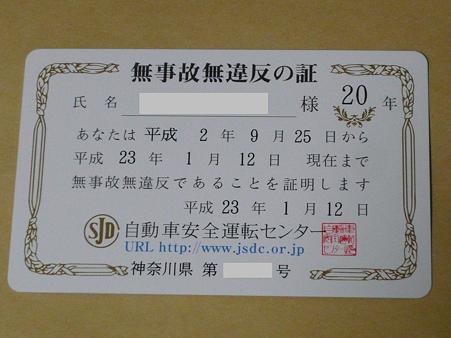 無事故無違反の証
氏名 様 20 年
あなたは 平成 2 年 9 月 25 日から
平成 23 年 1 月 12 日 現在まで
無事故無違反であることを証明します
平成 23 年 1 月 12 日
SJD 自動車安全運転センター
URL http://www.jsdc.or.jp
神奈川県 第 号